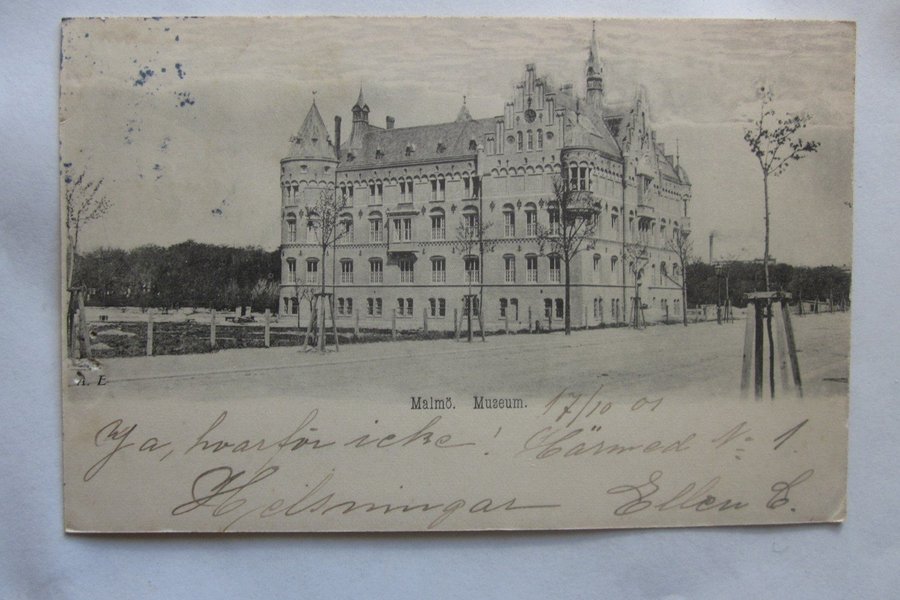 A. E
Malmö. Museum. 17/10 01
Ya, hvarför icke! Härmed No 1.
Helsningar Ellen C.